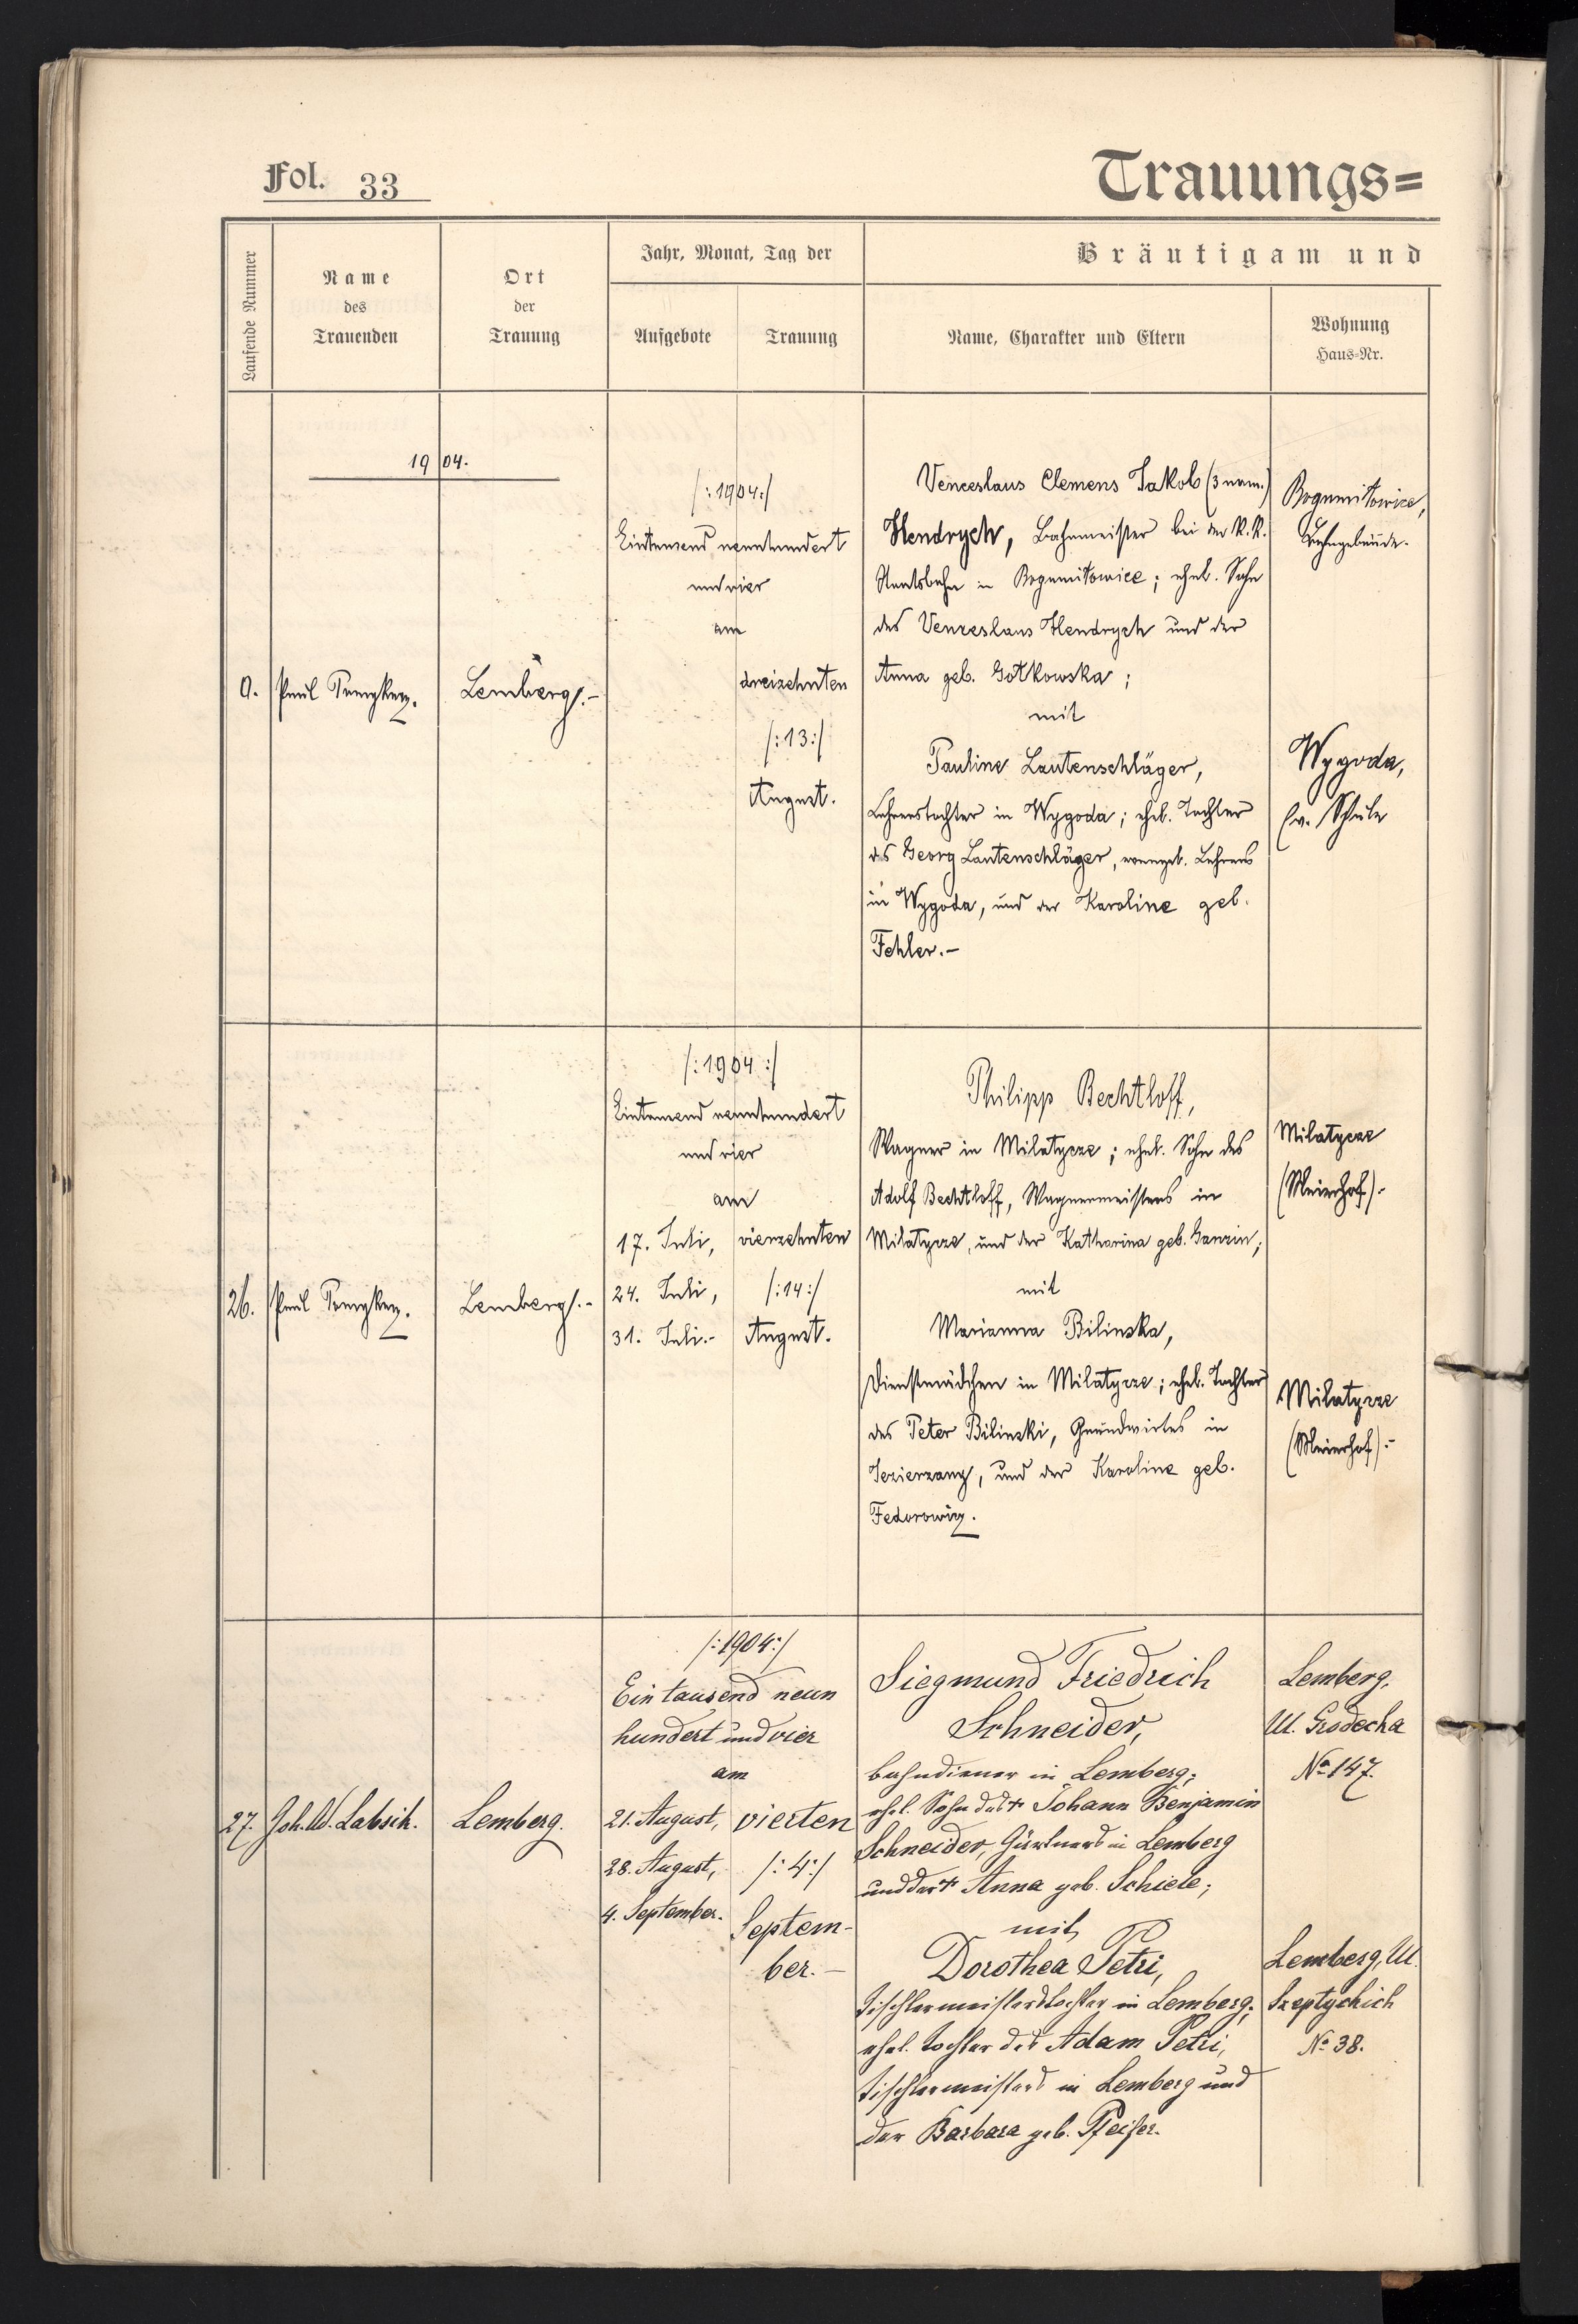 Fol. 33
Trauungs=
Laufende Nummer
Name
des
Trauenden
Ort
der
Trauung
Jahr, Monat, Tag der
Aufgebote
Trauung
Bräutigam und
Name, Charakter und Eltern
Wohnung
Haus-Nr.
1904.
0.
Paul
Lemberg.-
/:1904:/
Eintausend neunhundert
und vier
am
dreizehnten
/:13:/
August.
Venceslaus Clemens Jakob (3 nom.)
Hendrych, Bahnmeister bei der K. K.
Staatsbahn in Bogumiłowice; ehel. Sohn
des Venceslaus Hendrych und der
Anna geb. Gotkowska;
mit
Pauline Lautenschläger,
Lehrerstochter in Wygoda; ehel. Tochter
des Georg Lautenschläger, evangel. Lehrers
in Wygoda, und der Karoline geb.
Fehler.-
Bogumiłowice,
Bahngebäude.
Wygoda,
Ev. Schule
26.
Paul
Lemberg.-
/:1904:/
Eintausend neunhundert
und vier
am
17. Juli,
24. Juli,
31. Juli.-
vierzehnten
/:14:/
August.
Philipp Bechtloff,
Wagner in Milatycze; ehel. Sohn des
Adolf Bechtloff, Wagnermeisters in
Milatycze, und der Katharina geb. Ganzin;
mit
Marianna Bilinska,
Dienstmädchen in Milatycze; ehel. Tochter
des Peter Bilinski, Grundwirtes in
Jezierzany, und der Karoline geb.
Fedorowicz.
Milatycze
(Meierhof).-
Milatycze
(Meierhof).-
27.
Joh. Labsik.
Lemberg.
/:1904:/
Ein tausend neun
hundert und vier
am
21. August,
28. August,
4. September.
vierten
/:4:/
Septem-
ber.-
Siegmund Friedrich
Schneider,
Bahndiener in Lemberg;
ehel. Sohn des † Johann Benjamin
Schneider, Gärtners in Lemberg
und der † Anna geb. Schiele;
mit
Dorothea Petri,
Tischlermeisterstochter in Lemberg;
ehel. Tochter des Adam Petri,
Tischlermeisters in Lemberg und
der Barbara geb. Pfeifer.
Lemberg,
Ul. Grodecka
No 147.
Lemberg, Ul.
Szeptyckich
No 38.